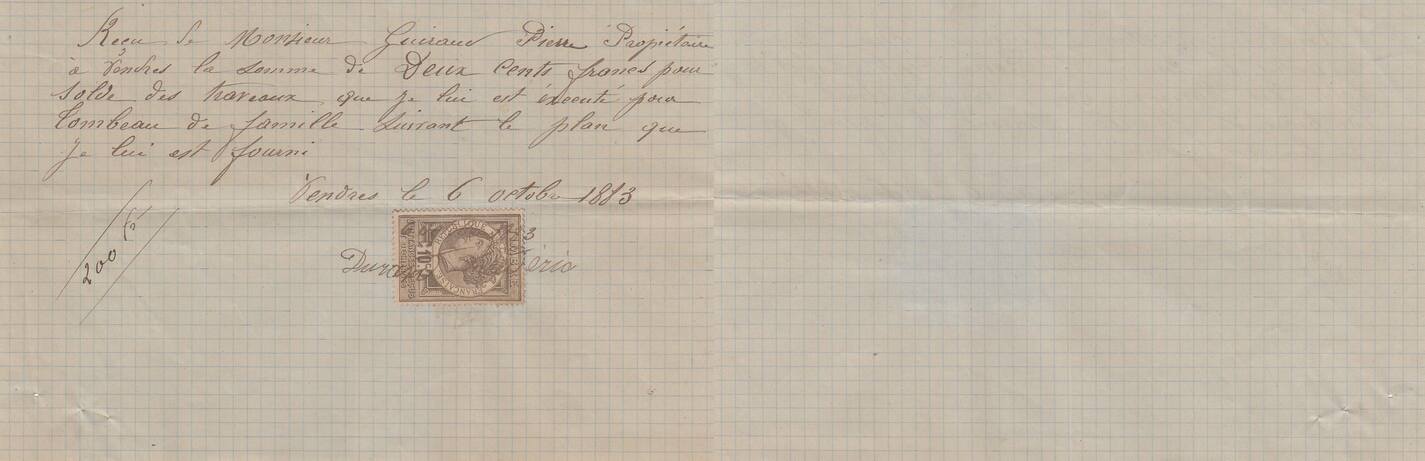 Recu de Monsieur Guiraud Pierre Propiétaire
à Vendres la somme de Deux cents francs pour
Solde des traveaux que je lui est éxecuté pour
tombeau de famille suivant le plan que
je lui est fourni
Vendres le 6 octobre 1883
200 fr
RÉPUBLIQUE FRANÇAISE
10 C